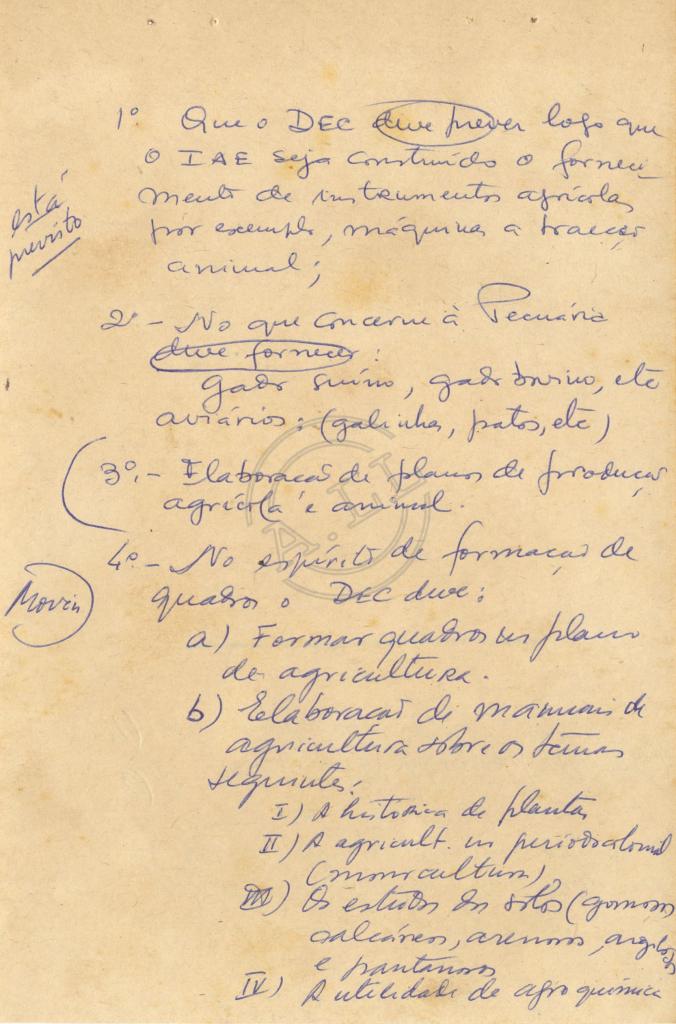 1º Que o DEC deve prever logo que
o IAE seja construído o forneci-
mento de instrumentos agrícolas
por exemplo, máquinas a tracção
animal;
está
previsto
2º - No que concerne à Pecuária
deve fornecer:
gado suíno, gado bovino, etc
aviários: (galinhas, patos, etc)
3º. - Elaboração de planos de produção
agrícola e animal.
4º - No espírito de formação de
quadros o DEC deve:
a) Formar quadros no plano
de agricultura.
b) Elaboração de manuais de
agricultura sobre os temas
seguintes:
I) A historica de plantas
II) A agricult. no periodo colonial
(monocultura)
III) Os estudos dos solos (gomosos
calcáreos, arenosos, argilosos
e pantanosos
IV) A utilidade de agro química
A.L.